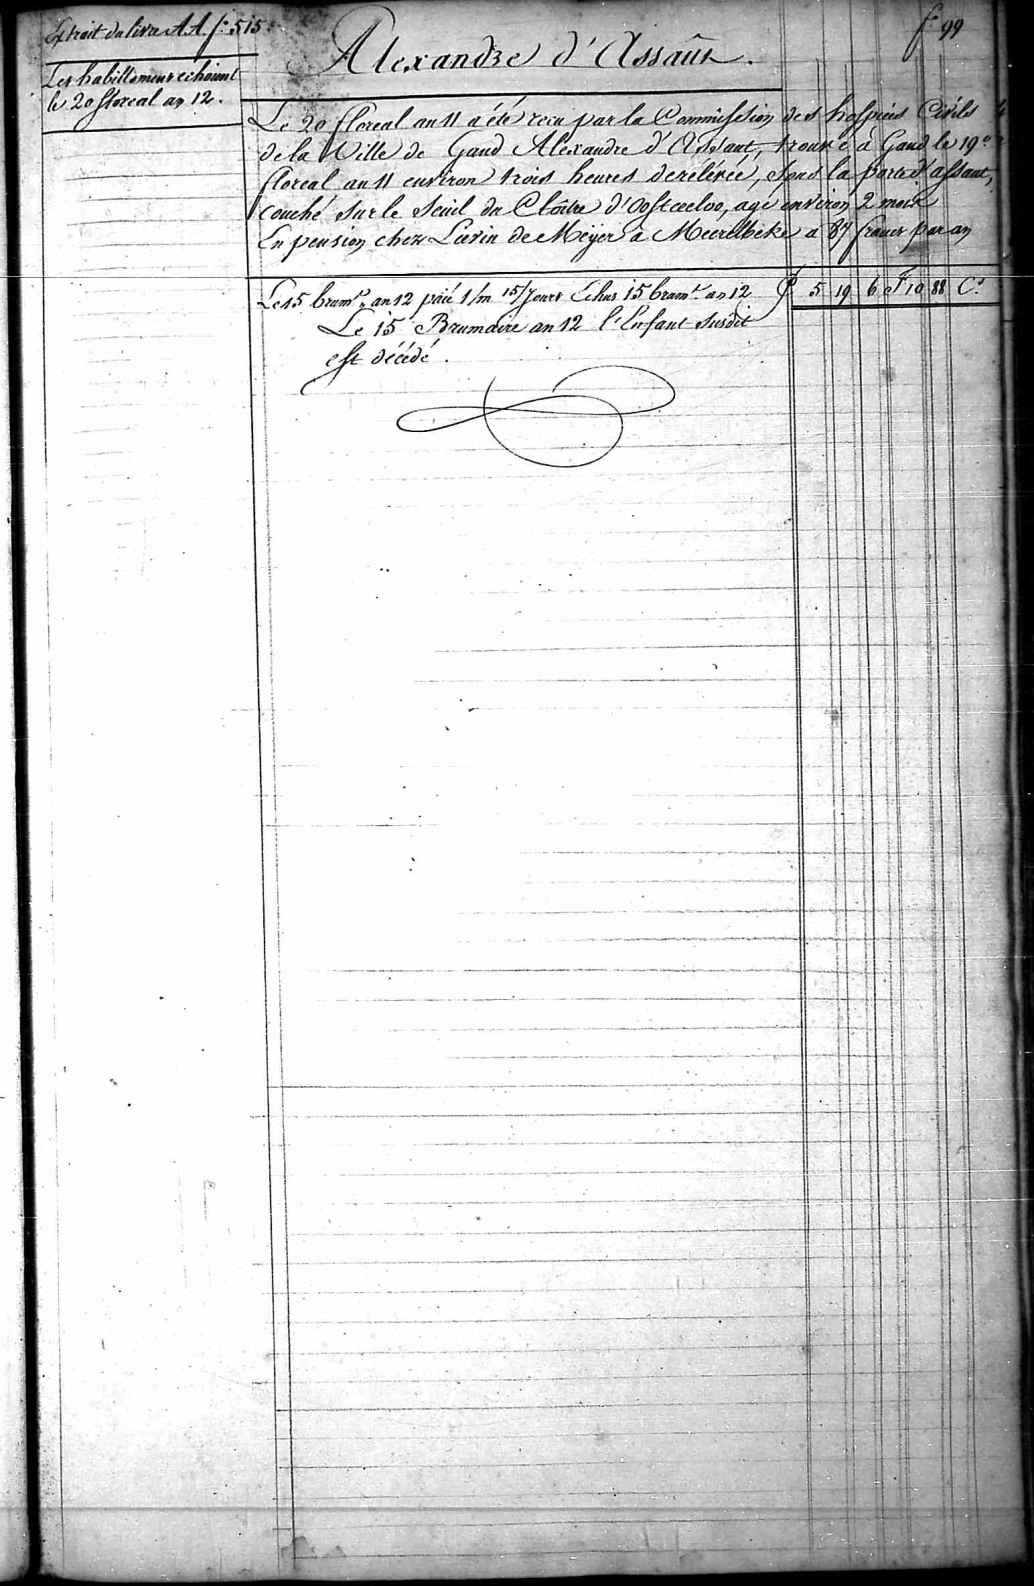 f.° 99
Extrait du livre A A. f.° 515.
Alexandre d'Assaut.
Les habillemens echoient
le 20 floreal an 12.
Le 20 floreal an 11 a été recu par la Commission des hospices Civils
de la Ville de Gand Alexandre d'Assaut, trouvé à Gand le 19.e
floreal an 11 environ trois heures de relévée, sous la porte d'assaut,
couché sur le seuil du Cloître d'Oosteecloo, agé environ 2 mois
En pension chez Livin de Meÿer à Meerelbeke a 87 francs par an
Le 15 brum.e an 12 páié 1/m 15/Jours Echus 15 brum.e an 12 P 5 19 6 ct F 10 88 C.s
Le 15 Brumaire an 12 l'Enfant susdit
est décédé.